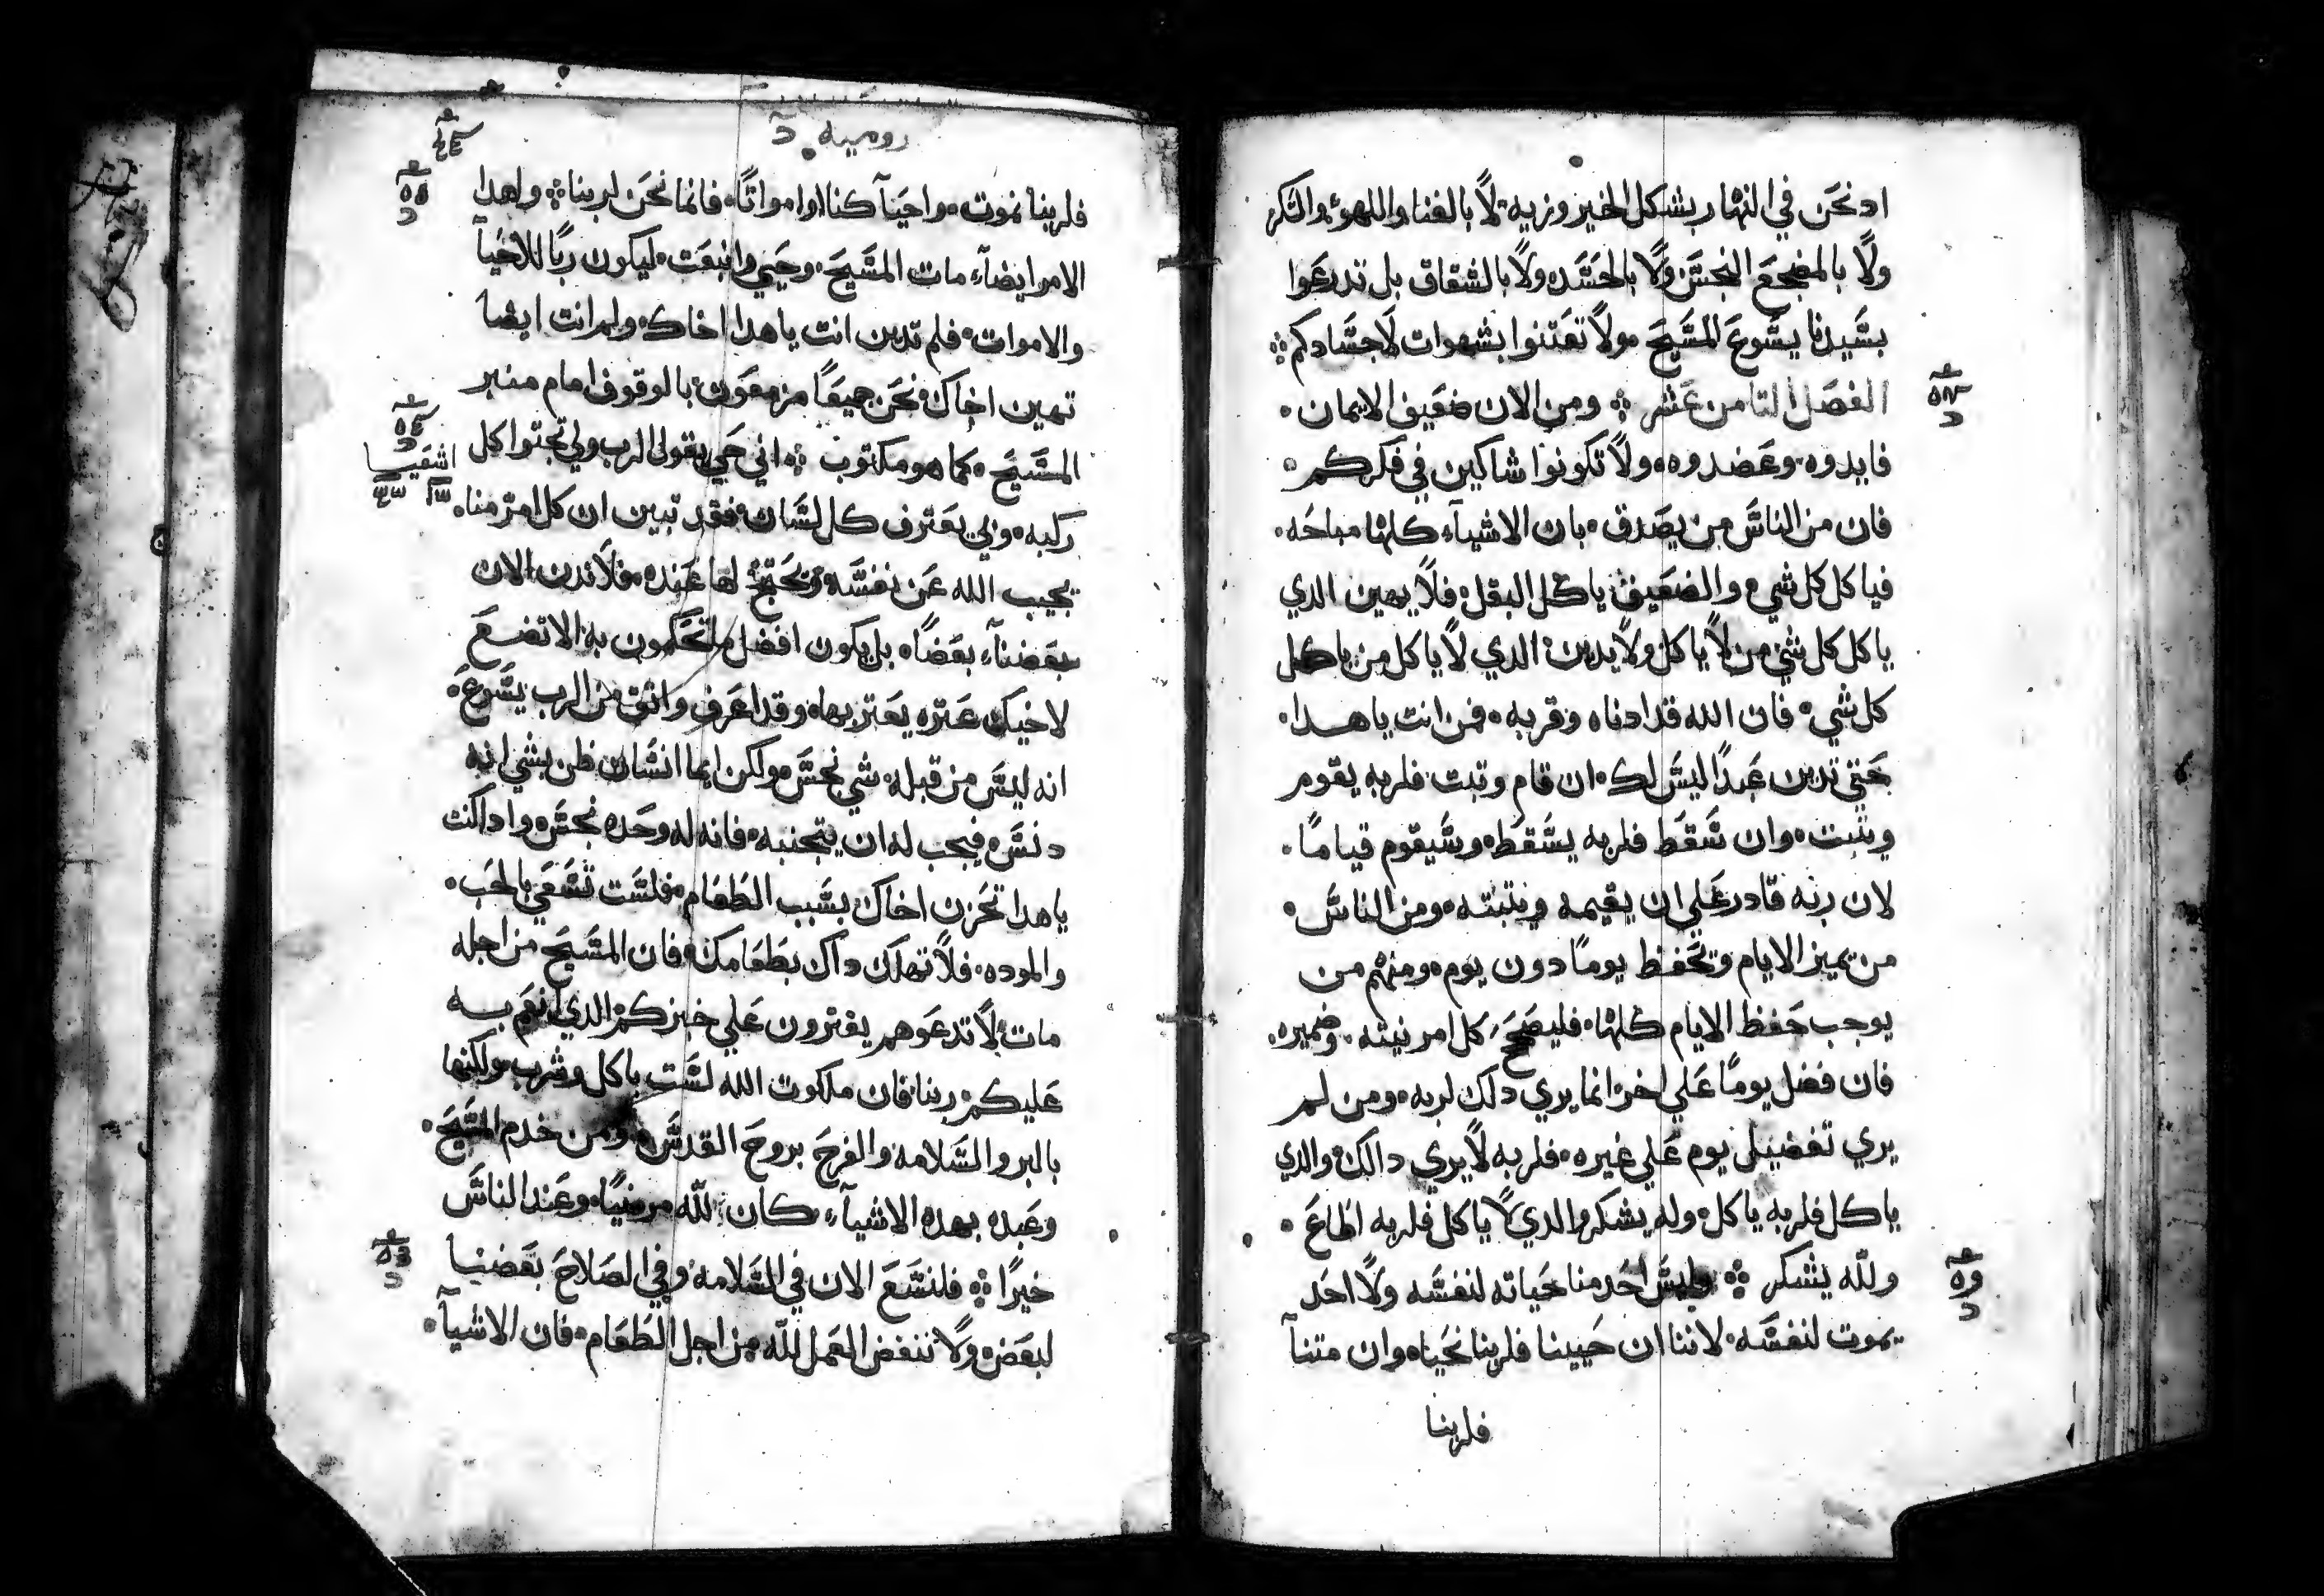 اد نحن في النهار بشكل الخير وزيه لا بالغنا واللهو والسكر
ولا بالمضجع النجس ولا بالحسد ولا بالشقاق بل تدرعوا
بسيدنا يسوع المسيح ولا تعتنوا بشهوات لاجسادكم
الفصل التامن عشر ومن الان ضعيف الايمان
فايدوه وعضدوه ولا تكونوا شاكين في فكركم
فان من الناس من يصدق بان الاشياء كلها مباحه
فياكل كل شي والضعيف ياكل البقل فلا يهين الدي
ياكل كل شي من لا ياكل ولا يدين الدي لا ياكل من ياكل
كل شي فان الله قد ادناه وقربه فمن انت يا هدا
حتي تدين عبدا ليس لك ان قام وتبت فلربه يقوم
ويتبت وان سقط فلربه يسقط وسيقوم قياما
لان ربه قادر علي ان يقيمه ويتبته ومن الناس
من يميز الايام وتحفظ يوما دون يوم ومنهم من
يوجب حفظ الايام كلها فليصح كل امر نيته وضميره
فان فضل يوما علي اخر انما يري دلك لربه ومن لم
يري تفضيل يوم علي غيره فلربه لا يري دالك والدي
ياكل فلربه ياكل وله يشكر والدي لا ياكل فلربه اطاع
ولله يشكر وليس احد منا حياته لنفسه ولا احد
يموت لنفسه لاننا ان حيينا فلربنا نحيا وان متنا
فلربنا
روميه
فلربنا نموت واحيآ كنا او امواتا فانما نحن لربنا ولهدا
الامر ايضاء مات المسيح وحيي وانبعت ليكون ربا للاحيآ
والاموات فلم تدين انت يا هدا اخاك ولم انت ايضا
تهين اخاك نحن جميعا مزمعون بالوقوف امام منبر
المسيح كما هو مكتوب اني حي يقول الرب ولي تجتوا كل
اشعيا
ركبه وبي يعترف كل لسان فقد تبين ان كل امر منا
يجيب الله عن نفسه ونحتج لها عنده فلا ندن الان
بعضناء بعضا بل يكون افضل ما تحكمون به الا تضع
لاخيك عتره يعتر بها وقد اعرف واتق من الرب يسوع
انه ليس من قبله شي نجس ولكن ايما انسان ظن بشي انه
دنس فيجب له ان يتجنبه فانه له وحده نجس وادا كنت
يا هدا تحزن اخاك بسبب الطعام فلست تسعي بالحب
والموده فلا تهلك داك بطعامك فان المسيح من اجله
مات لا تدعوهم يفترون علي خبزكم الدي انعم به
عليكم ربنا فان ملكوت الله لست باكل وشرب ولكنها
بالبر والسلامه والفرح بروح القدس ومن خدم المسيح
وعبده بهده الاشيآء كان لله مرضيا وعند الناس
خيرا فلنسع الان في السلامه وفي الصلاح بعضنا
لبعض ولا ننغض العمل لله من اجل الطعام فان الاشيآ